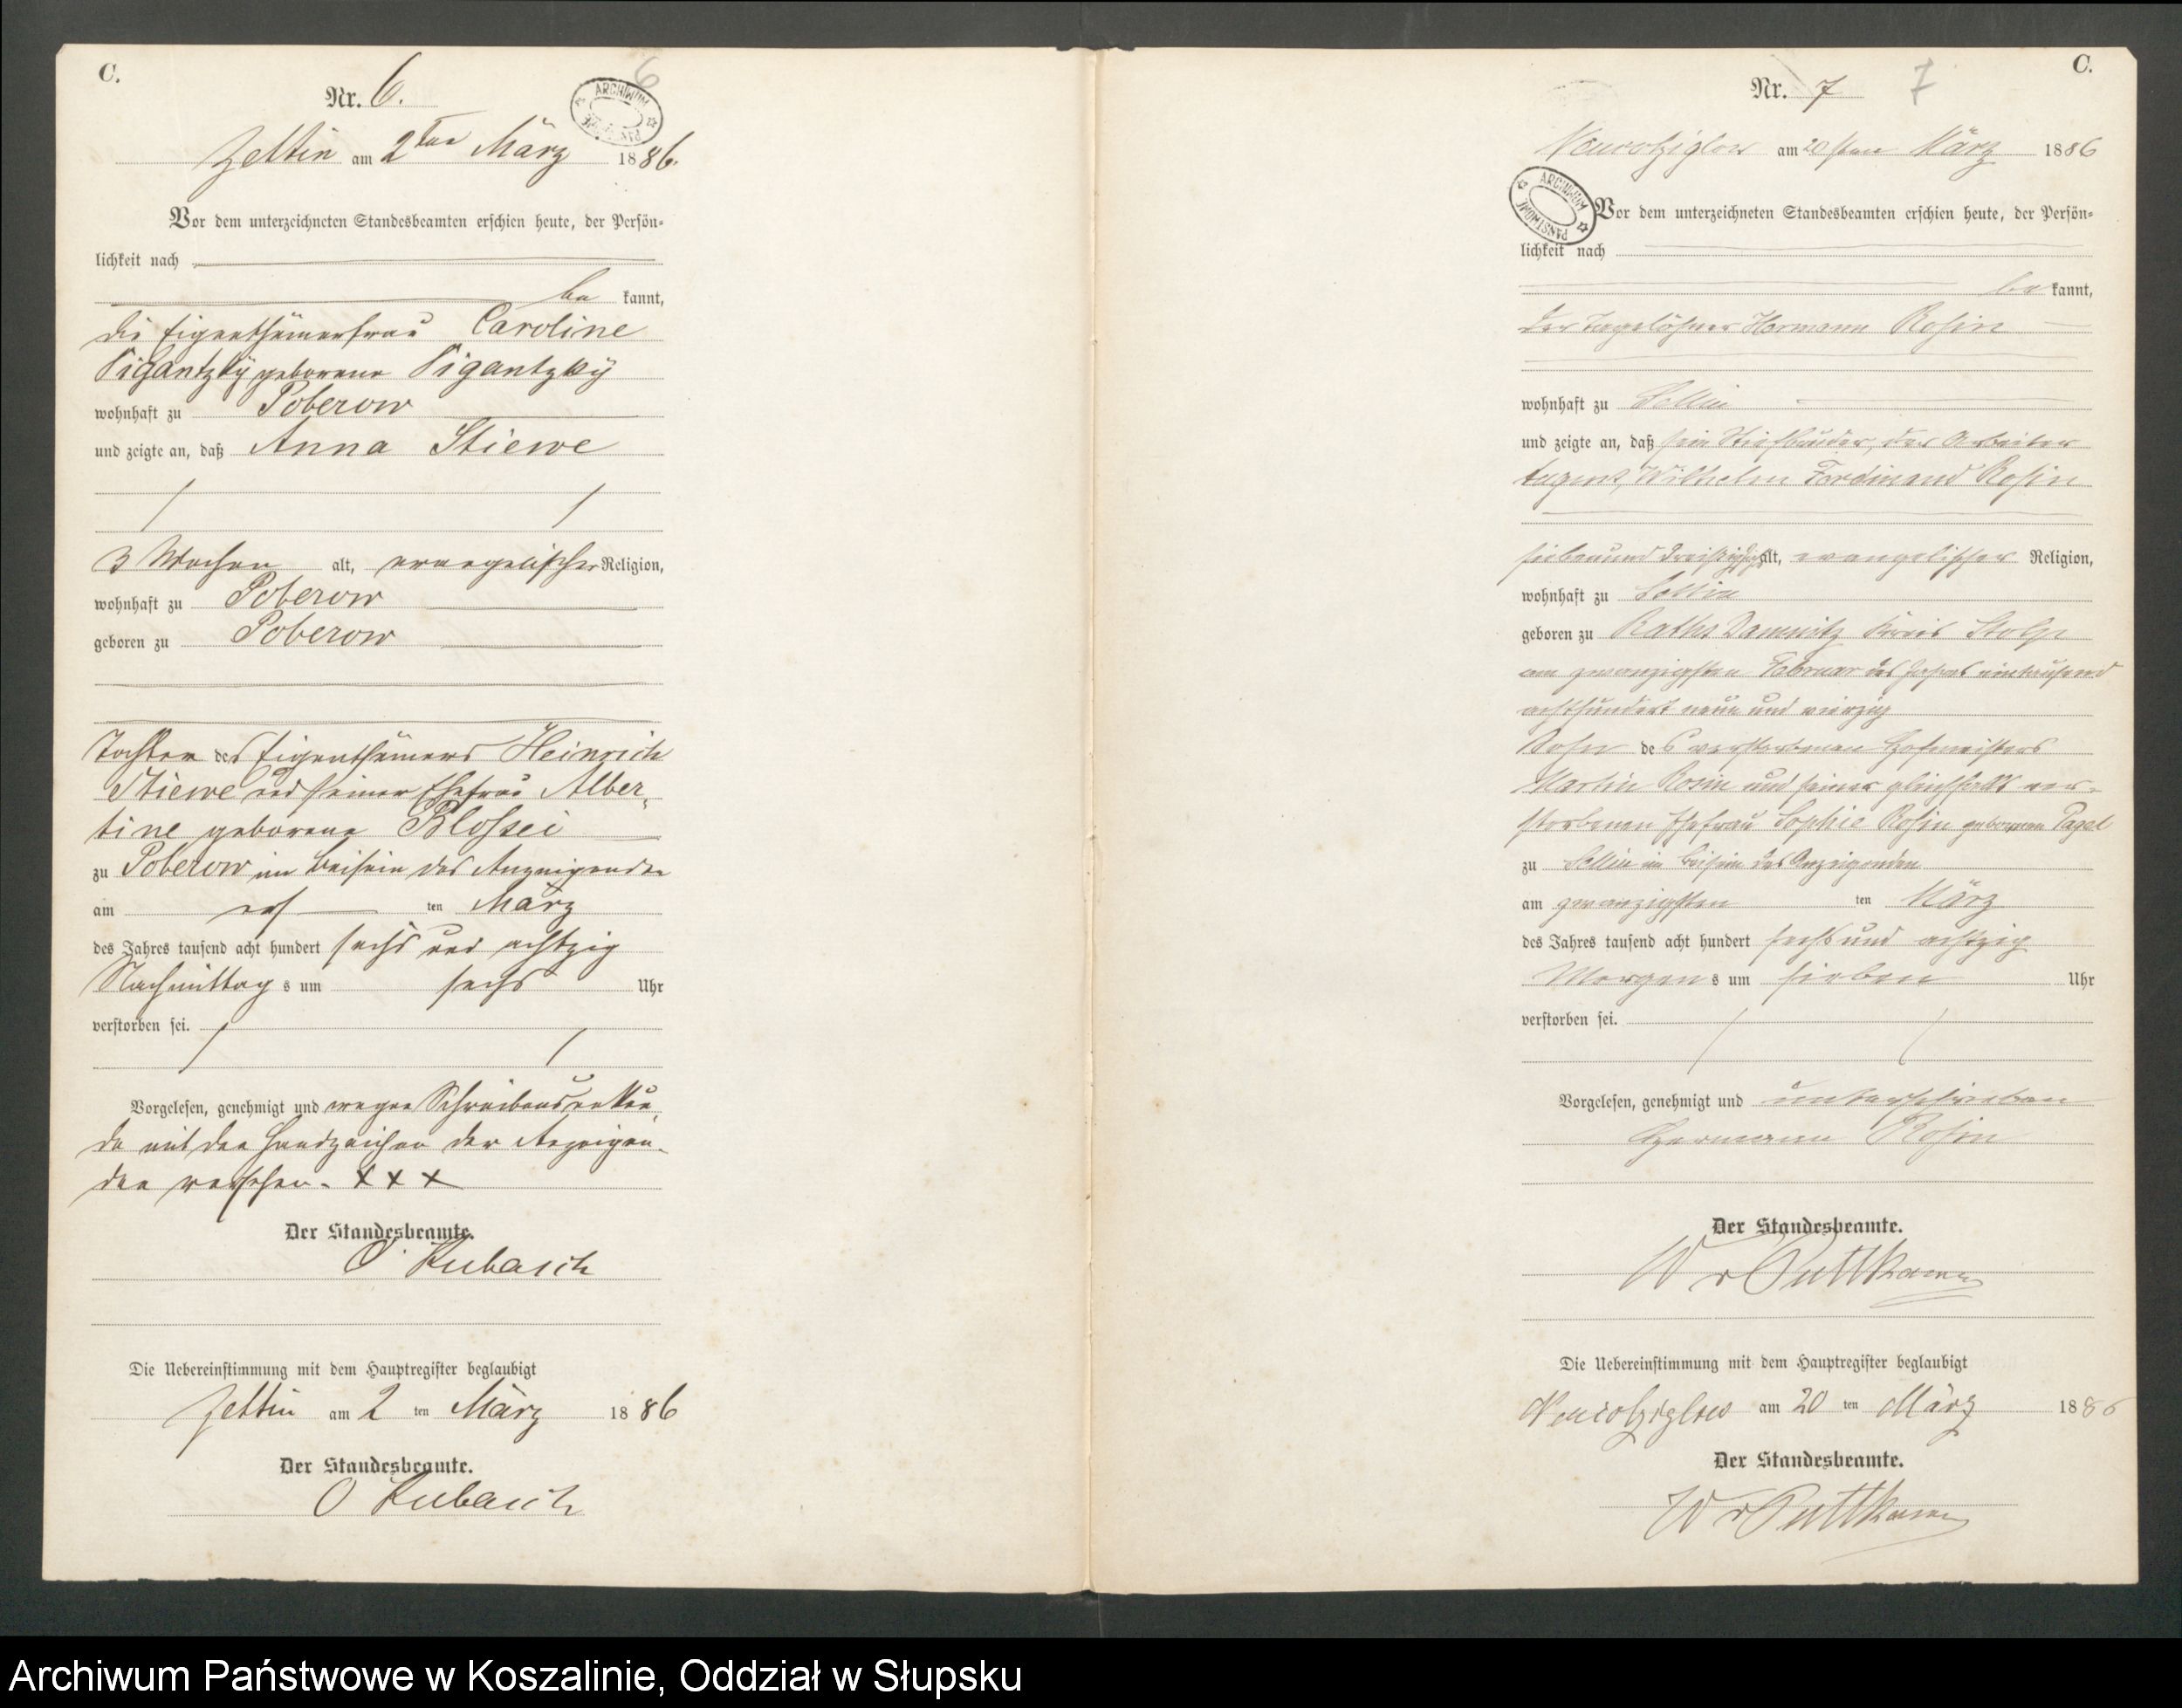 C.
Nr. 6.
6
ARCHIWUM
Zettin am 2ten März 1886.
Vor dem unterzeichneten Standesbeamten erschien heute, der Persön-
lichkeit nach
be kannt,
die Eigenthümerfrau Caroline
Pigantzky geborene Pigantzky
wohnhaft zu Poberow
und zeigte an, daß Anna Stiewe
3 Wochen alt, evangelischer Religion,
wohnhaft zu Poberow
geboren zu Poberow
Tochter des Eigenthümers Heinrich
Stiewe und seiner Ehefrau Alber-
tine geborene
zu Poberow im Beisein des Anzeigenden
am ers ten März
des Jahres tausend acht hundert sechs und achtzig
Nachmittag s um sechs Uhr
verstorben sei.
Vorgelesen, genehmigt und wegen Schreibensunkun-
de mit den Handzeichen der Anzeigen-
den versehen. XXX
Der Standesbeamte.
O. Kubasch
Die Uebereinstimmung mit dem Hauptregister beglaubigt
Zettin am 2 ten März 1886
Der Standesbeamte.
O Kubasch
C.
Nr. 7
7
am 20sten März 1886
ARCHIWUM PAŃSTWOWE
Vor dem unterzeichneten Standesbeamten erschien heute, der Persön-
lichkeit nach
be kannt,
der Tagelöhner Hermann Rosin
wohnhaft zu
und zeigte an, daß sein Stiefbruder, der Arbeiter
August, Wilhelm Ferdinand Rosin
siebenunddreißig Jahr alt, evangelischer Religion,
wohnhaft zu
geboren zu Raths Damnitz Kreis Stolp
am zwanzigsten Februar des Jahres eintausend
achthundert neun und vierzig
Sohn des verstorbenen Hofmeisters
Martin Rosin und seiner gleichfalls ver-
storbenen Ehefrau Sophie Rosin geborenen Pagel
zu im Beisein des Anzeigenden
am zwanzigsten ten März
des Jahres tausend acht hundert sechs und achtzig
Morgen s um sieben Uhr
verstorben sei.
Vorgelesen, genehmigt und unterschrieben
Hermann Rosin
Der Standesbeamte.
W v Puttkamer
Die Uebereinstimmung mit dem Hauptregister beglaubigt
am 20 ten März 1886
Der Standesbeamte.
W v Puttkamer
Archiwum Państwowe w Koszalinie, Oddział w Słupsku